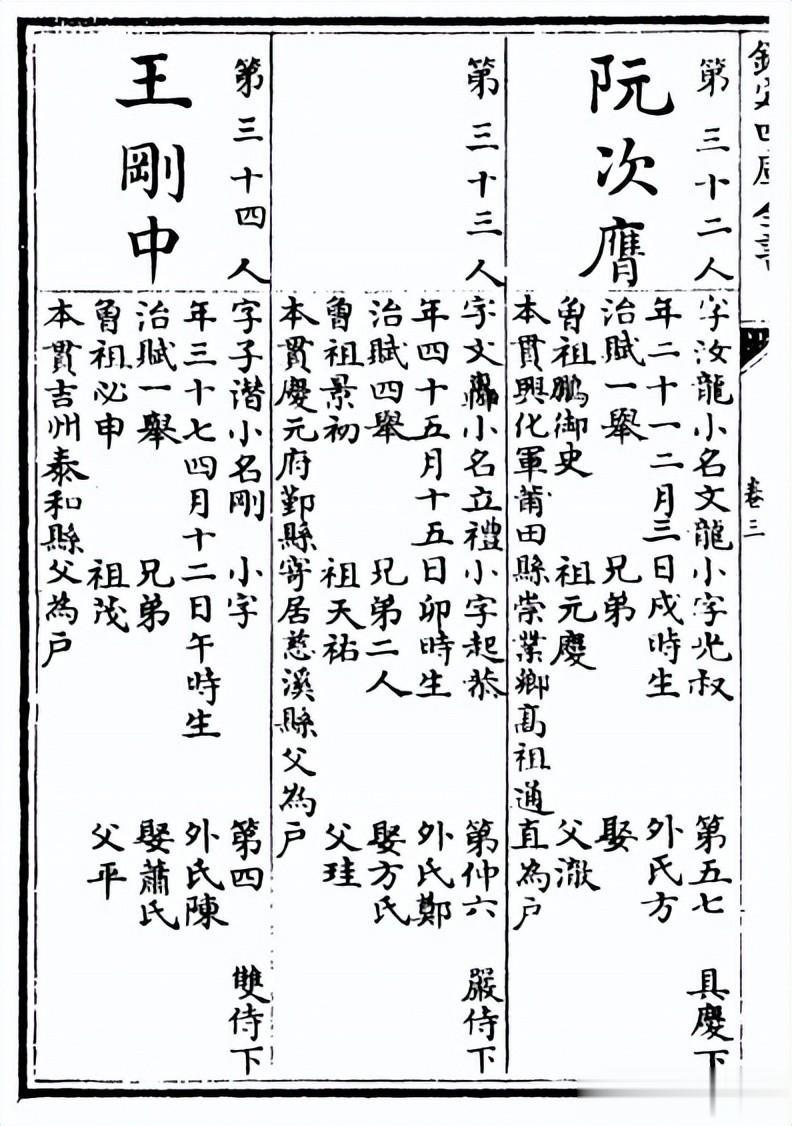 欽定四庫全書
卷三
第三十二人
阮次膺
字汝龍小名文龍小字光叔 第五七 具慶下
年二十一二月三日戌時生 外氏方
治賦一舉 兄弟 娶
曾祖鵬御史 祖元慶 父澈
本貫興化軍莆田縣崇業鄉髙祖通直為户
第三十三人
字文 小名立禮小字起恭 第仲六 嚴侍下
年四十五月十五日卯時生 外氏鄭
治賦四舉 兄弟二人 娶方氏
曾祖景初 祖天祐 父珪
本貫慶元府鄞縣寄居慈溪縣父為户
第三十四人
王剛中
字子潛小名剛 小字 第四 雙侍下
年三十七四月十二日午時生 外氏陳
治賦一舉 兄弟 娶蕭氏
曾祖必申 祖茂 父平
本貫吉州泰和縣父為户